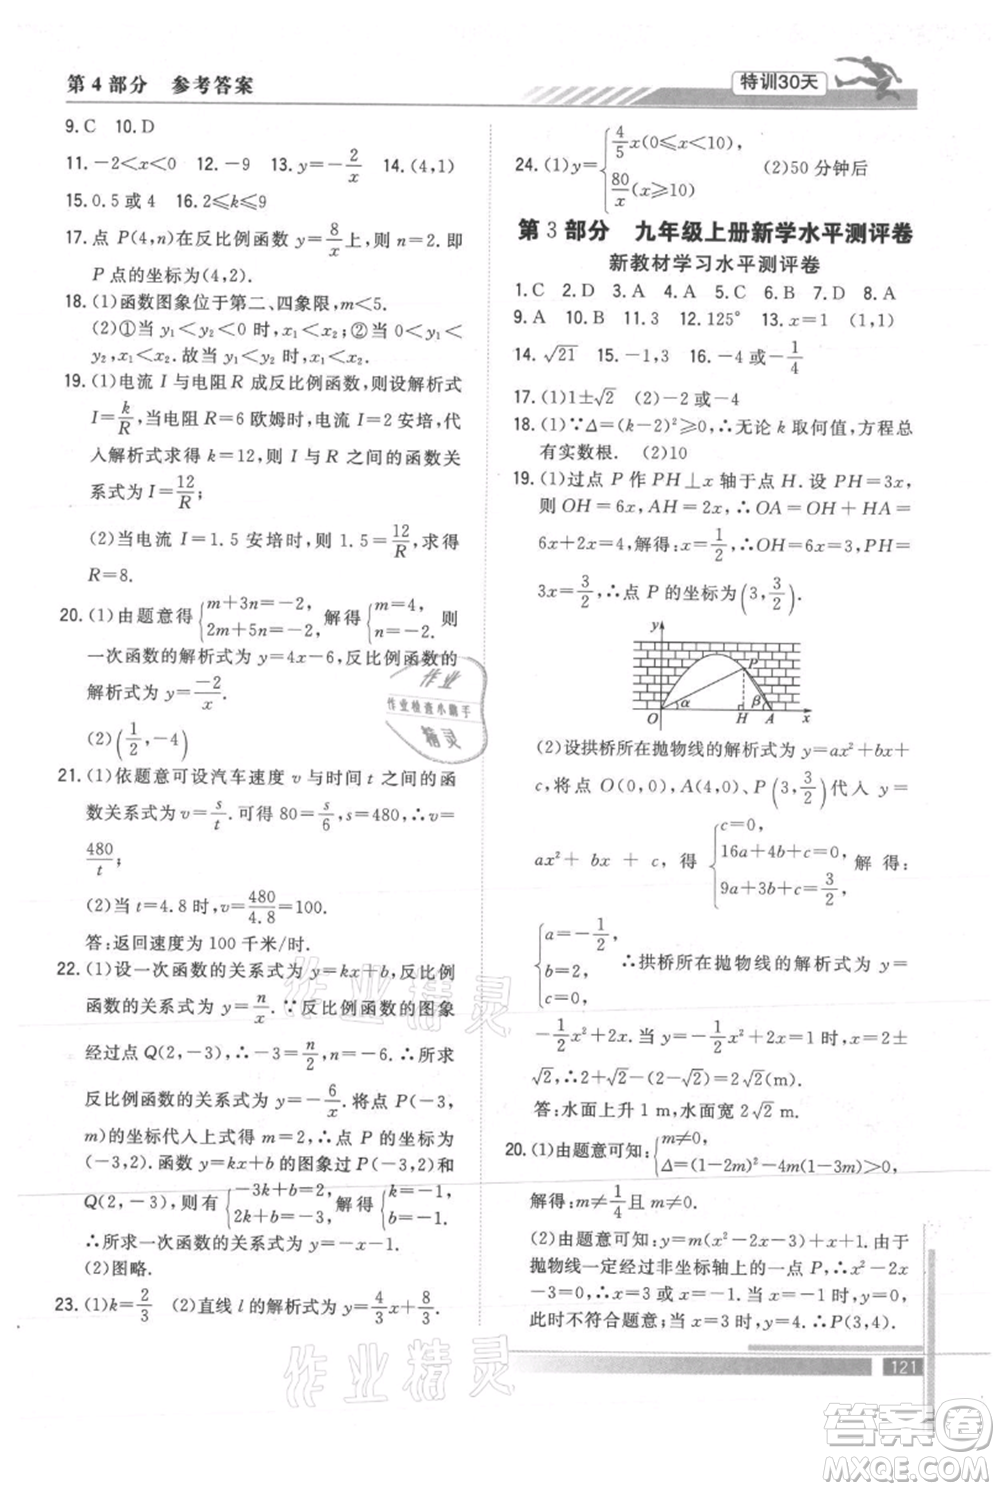 第4部分 参考答案
特训30天
9. C 10. D
11. －2＜x＜0 12. －9 13. y=－2/x 14. (4,1)
15. 0.5 或 4 16. 2≤k≤9
17. 点 P(4,n)在反比例函数 y=8/x上,则 n=2.即
P 点的坐标为(4,2).
18. (1)函数图象位于第二、四象限,m＜5.
(2)①当 y₁＜y₂＜0 时,x₁＜x₂;②当 0＜y₁＜
y₂,x₁＜x₂.故当 y₁＜y₂时,x₁＜x₂.
19. (1)电流 I 与电阻 R 成反比例函数,则设解析式
I=k/R,当电阻 R=6 欧姆时,电流 I=2 安培,代
入解析式求得 k=12,则 I 与 R 之间的函数关
系式为 I=12/R;
(2)当电流 I=1.5 安培时,则 1.5=12/R,求得
R=8.
20. (1)由题意得{m+3n=－2, 2m+5n=－2, 解得{m=4, n=－2. 则
一次函数的解析式为 y=4x－6,反比例函数的
解析式为 y=－2/x.
(2)(1/2,－4)
21. (1)依题意可设汽车速度 v 与时间 t 之间的函
数关系式为 v=s/t.可得 80=s/6,s=480,∴v=
480/t;
(2)当 t=4.8 时,v=480/4.8=100.
答:返回速度为 100 千米/时.
22. (1)设一次函数的关系式为 y=kx+b,反比例
函数的关系式为 y=n/x.∵反比例函数的图象
经过点 Q(2,－3),∴－3=n/2,n=－6.∴所求
反比例函数的关系式为 y=－6/x.将点 P(－3,
m)的坐标代人上式得 m=2,∴点 P 的坐标为
(－3,2).∵y=kx+b 的图象过点 P(－3,2)和
Q(2,－3),则有{－3k+b=2, 2k+b=－3, 解得{k=－1, b=－1.
∴所求一次函数的关系式为 y=－x－1.
(2)图略.
23. (1)k=2/3 (2)直线 l 的解析式为 y=4/3x+8/3
24. (1)y={4/5x(0≤x＜10), 80/x(x≥10) (2)50 分钟后
第 3 部分 九年级上册新学水平测评卷
新教材学习水平测评卷
1. C 2. D 3. A 4. A 5. C 6. B 7. D 8. A
9. A 10. B 11. 3 12. 125° 13. x=1 (1,1)
14. √21 15. －1,3 16. －4 或－1/4
17. (1)1±√2 (2)－2 或－4
18. (1)∵Δ=(k－2)²≥0,∴无论 k 取何值,方程总
有实数根. (2)10
19. (1)过点 P 作 PH⊥x 轴于点 H.设 PH=3x,
则 OH=6x,AH=2x,∴OA=OH+HA=
6x+2x=4,解得:x=1/2,∴OH=6x=3,PH=
3x=3/2,∴点 P 的坐标为(3,3/2).
y P α β O H A x
(2)设拱桥所在抛物线的解析式为 y=ax²+bx+
c,将点 O(0,0),A(4,0),P(3,3/2)代人 y=
ax²+bx+c,得{c=0, 16a+4b+c=0, 9a+3b+c=3/2, 解得:
{a=－1/2, b=2, c=0, ∴拱桥所在抛物线的解析式为 y=
－1/2x²+2x.当 y=－1/2x²+2x=1 时,x=2±
√2,∴2+√2－(2－√2)=2√2(m).
答:水面上升 1 m,水面宽为 2√2 m.
20. (1)由题意可知:{m≠0, Δ=(1－2m)²－4m(1－3m)＞0,
解得:m≠1/4且 m≠0.
(2)由题意可知:y=m(x²－2x－3)+x+1,∴
抛物线一定经过非坐标轴上的一点 P,∴x²－2x
－3=0,∴x=3 或 x=－1.当 x=－1 时,y=0,
此时不符合题意;∴P(3,4).
121
作业
作业检查小助手
精灵
作业精灵
作业精灵
答案卷
MXQE.COM